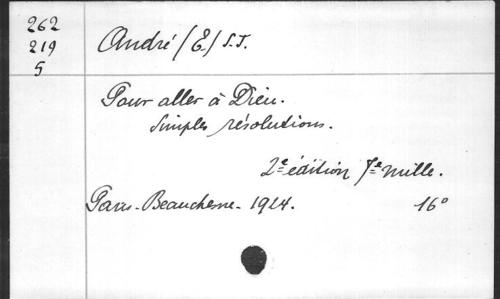 262
219
5
André (E) S.J.
Pour aller à Dieu.
Simples résolutions.
2e édition 7e mille.
Paris - Beauchesne - 1924.
16°